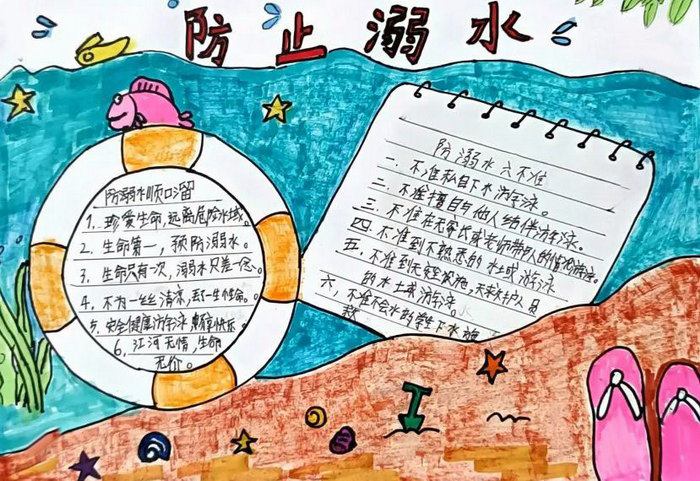 防止溺水
防溺水顺口溜
1、珍爱生命,远离危险水域。
2、生命第一,预防溺水。
3、生命只有一次,溺水只差一念。
4、不为一丝清凉,丢了一生性命。
5、安全健康游泳,享快乐。
6、江河无情,生命
无价。
防溺水六不准
一、不准私自下水游泳。
二、不准擅自与他人结伴游泳。
三、不准在无家长或老师带队的情况游泳。
四、不准到不熟悉的水域游泳
五、不准到无安全设施、无救护人员
的水土域游泳。
六、不准不会水的学生下水施
救